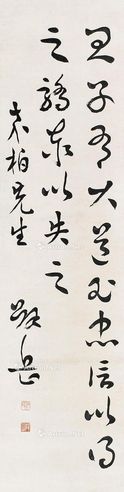 君子有大道必忠信以得
之驕泰以失之
柏先生